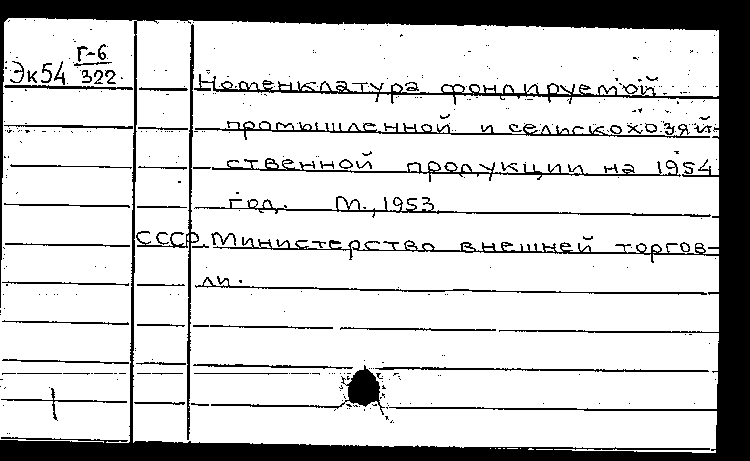 Г-6
Эк54 322
Номенклатура фондируемой
промышленной и селискохозяй-
ственной продукции на 1954
год. М., 1953
СССР. Министерство внешней торгов-
ли.
1